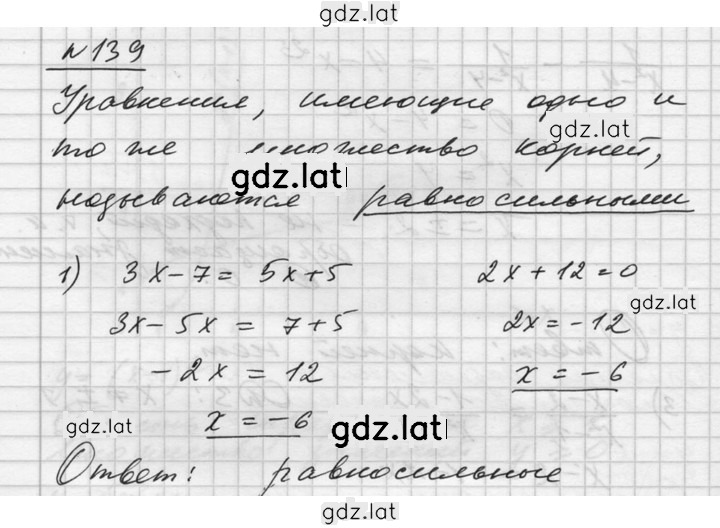 gdz.lat
№139
Уравнения, имеющие одно и
gdz.lat
то же множество корней,
gdz.lat
называются равносильными
1) 3x-7 = 5x+5 2x+12=0
gdz.lat
3x-5x = 7+5 2x=-12
-2x = 12 x = -6
gdz.lat x = -6 gdz.lat gdz.lat
Ответ: равносильные
gdz.lat